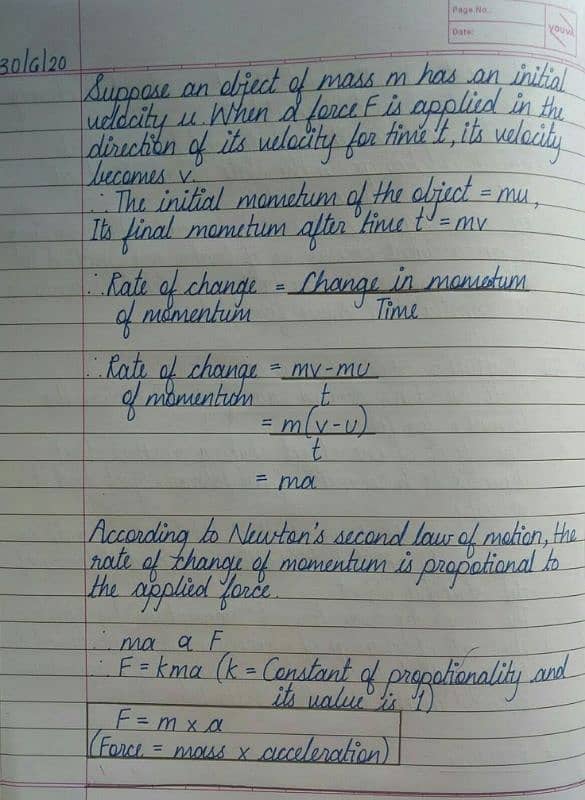 Page No.
Date:
youva
30/6/20
Suppose an object of mass m has an initial
velocity u. When a force F is applied in the
direction of its velocity for time t, its velocity
becomes v.
∴ The initial mometum of the object = mu,
Its final mometum after time t = mv
∴ Rate of change = Change in momentum
of momentum Time
∴ Rate of change = mv-mu
of momentum t
= m(v-u)
t
= ma
According to Newton's second law of motion, the
rate of change of momentum is propotional to
the applied force.
∴ ma α F
∴ F = kma (k = Constant of propotionality and
its value is 1)
F = m x a
(Force = mass x acceleration)